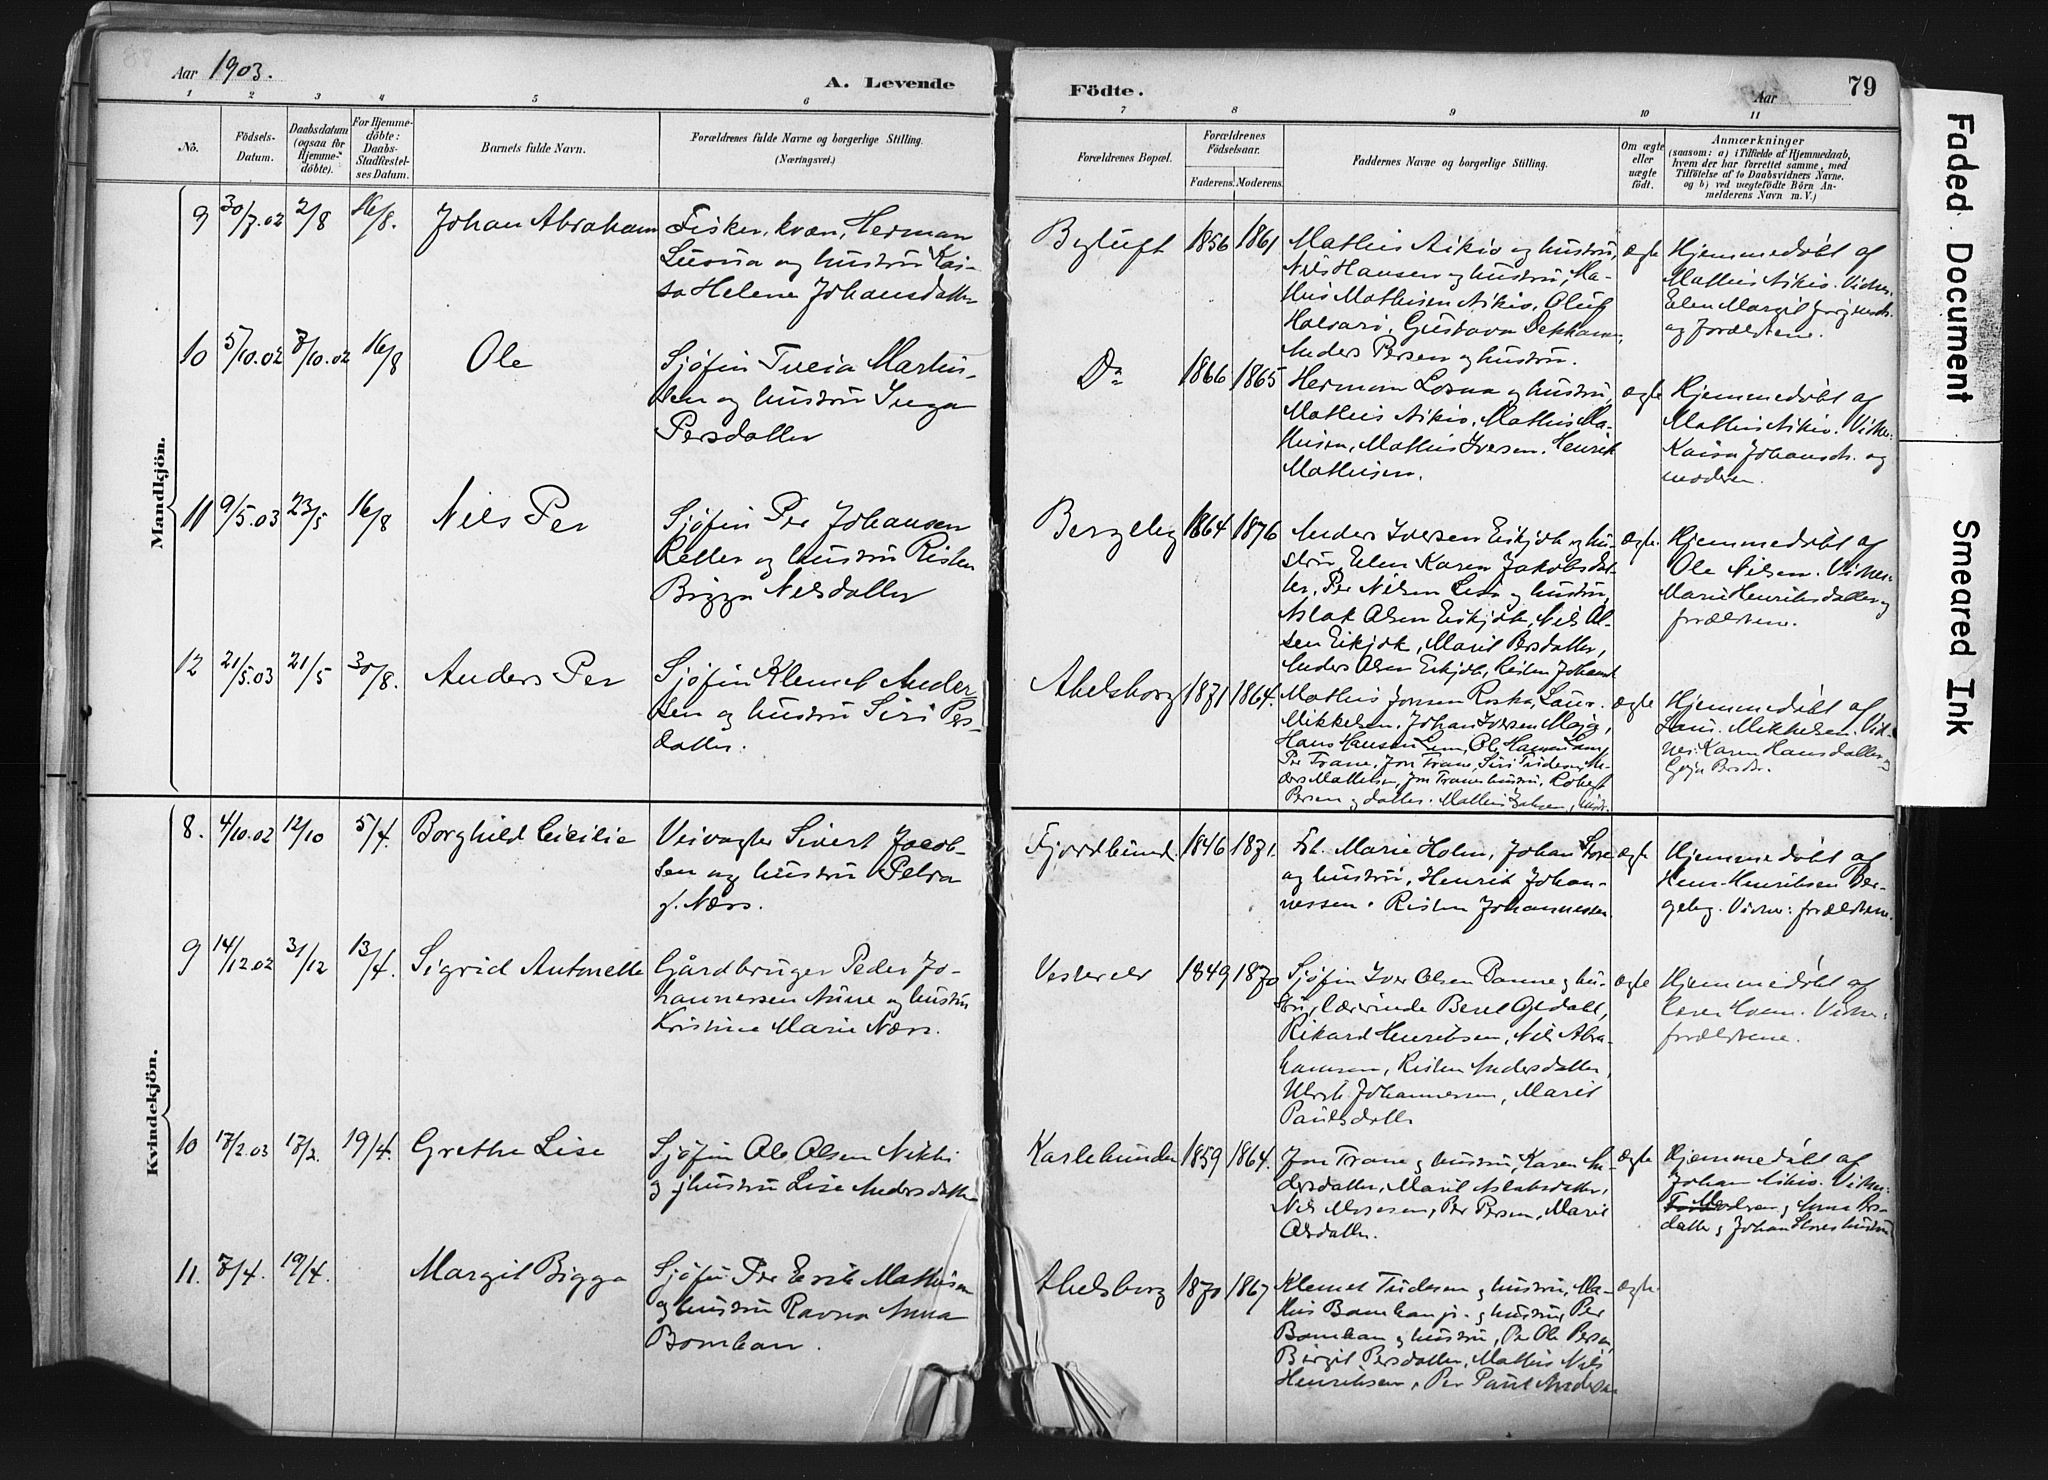 Aar 1903.
A. Levende
Födte.
Aar
79
1 2 3 4 5 6 7 8 9 10 11
Nö.
Födsels-
Datum.
Daabsdatum
(ogsaa for
Hjemme-
döbte).
For Hjemme-
döbte:
Daabs-
Stadfæstel-
ses Datum.
Barnets fulde Navn.
Forældrenes fulde Navne og borgerlige Stilling.
(Næringsvei.)
Forældrenes Bopæl.
Forældrenes
Födselsaar.
Faderens. Moderens.
Faddernes Navne og borgerlige Stilling.
Om ægte
eller
uægte
födt.
Anmærkninger
(saasom: a) i Tilfælde af Hjemmedaab,
hvem der har forrettet samme, med
Tilföielse af to Daabsvidners Navne,
og b) ved uægtefödte Börn An-
melderens Navn m. V.)
Mandkjön.
9 30/7.02 2/8 16/8. Johan Abraham
Fisker, kvæn, Herman
og hustru Kai-
sa Helene Johansdatter
Byluft 1856 1861
Mathis Aikio og hustru,
Nils Hansen og hustru, Ma-
this Mathisen Aikio, Oluf
Gustava
Anders Persen og hustru.
ægte
Hjemmedøbt af
Mathis Aikio. Vidner:
Elen Margit
og forældrene.
10 5/10.02 7/10.02 16/8 Ole
Sjøfin Martin-
sen og hustru Inga
Persdatter
Do 1866 1865
Herman og hustru,
Mathis Aikio, Mathis Ma-
thisen, Mathis Iversen, Henrik
Mathisen.
ægte
Hjemmedøbt af
Mathis Aikio. Vidner:
Kaisa Johansdr. og
moderen.
11 9/5.03 23/5 16/8 Nils Per
Sjøfin Per Johansen
og hustru Risten
Bigga Nilsdatter
Bergeby 1864 1876
Anders Iversen Eikjok og hu-
stru, Elen Karen Jakobsdat-
ter, Per Nilsen og hustru,
Aslak Olsen Eikjok, Nils Ol-
sen Eikjok, Marit Persdatter,
Anders Olsen Eikjok, Risten Johansd.
ægte.
Hjemmedøbt af
Ole Nilsen. Vidner:
Marie Henriksdatter og
forældrene.
12 21/5.03 21/5 30/8. Anders Per
Sjøfin Klemet Ander-
sen og hustru Siri Pers-
datter.
Abelsborg 1871 1864.
Mathis Jonsen Roska, Laur.
Mikkelsen, Johan Iversen
Hans Hansen Ole Hansen
Per Trane, Jon Trane, Siri
ders Mathisen, Jon Tranes hustru, Robert
Persen og datter. Mathis
ægte
Hjemmedøbt af
Laur. Mikkelsen. Vid-
ner: Karen Hansdatter og
Persdtr.
Kvindekjön.
8. 4/10.02 12/10 5/4. Borghild Cicilie
Veivogter Sivert Jacob-
sen og hustru Petra
f. Næss.
Fjordbund. 1846 1871.
Frk. Marie Holm, Johan Store
og hustru, Henrik Johan-
nessen, Risten Johannessen.
ægte
Hjemmedøbt af
Henr. Henriksen Ber-
geby. Vidner: forældrene.
9 14/12.02 31/12 13/4. Sigrid Antonette
Gårdbruger Peder Jo-
hannessen og hustru
Kristine Marie Næss.
Vesterelv 1849 1870
Sjøfin Iver Olsen og hu-
stru, lærerinde Beret
Rikard Henriksen, Nils Abra-
hamsen, Risten Andersdatter,
Ulrik Johannessen, Marit
Paulsdatter
ægte
Hjemmedøbt af
Vidner:
forældrene.
10 17/2.03 17/2. 19/4. Grethe Lise
Sjøfin Ole Olsen
og hustru Lise Andersdatter
Karlebunden 1859 1864.
Jon Trane og hustru, Karen An-
dersdatter, Marit Aslaksdatter,
Nils Mosesen, Per Persen, Marit
Olsdatter.
ægte
Hjemmedøbt af
Johan Aikio. Vidner:
Moderen og Anna Pers-
datter og Johan Stores hustru
11. 7/4. 19/4. Margit Bigga
Sjøfin Per Erik Mathisen
og hustru Ravna Anna
Bomban.
Abelsborg 1870 1867
Klemet og hustru, Ma-
this Bomban jr. og hustru, Per
Bomban og hustru, Per Ole Persen,
Birgit Persdatter, Mathis Nils
Henriksen, Per Paul Andersen
ægte.
Faded Document
Smeared Ink